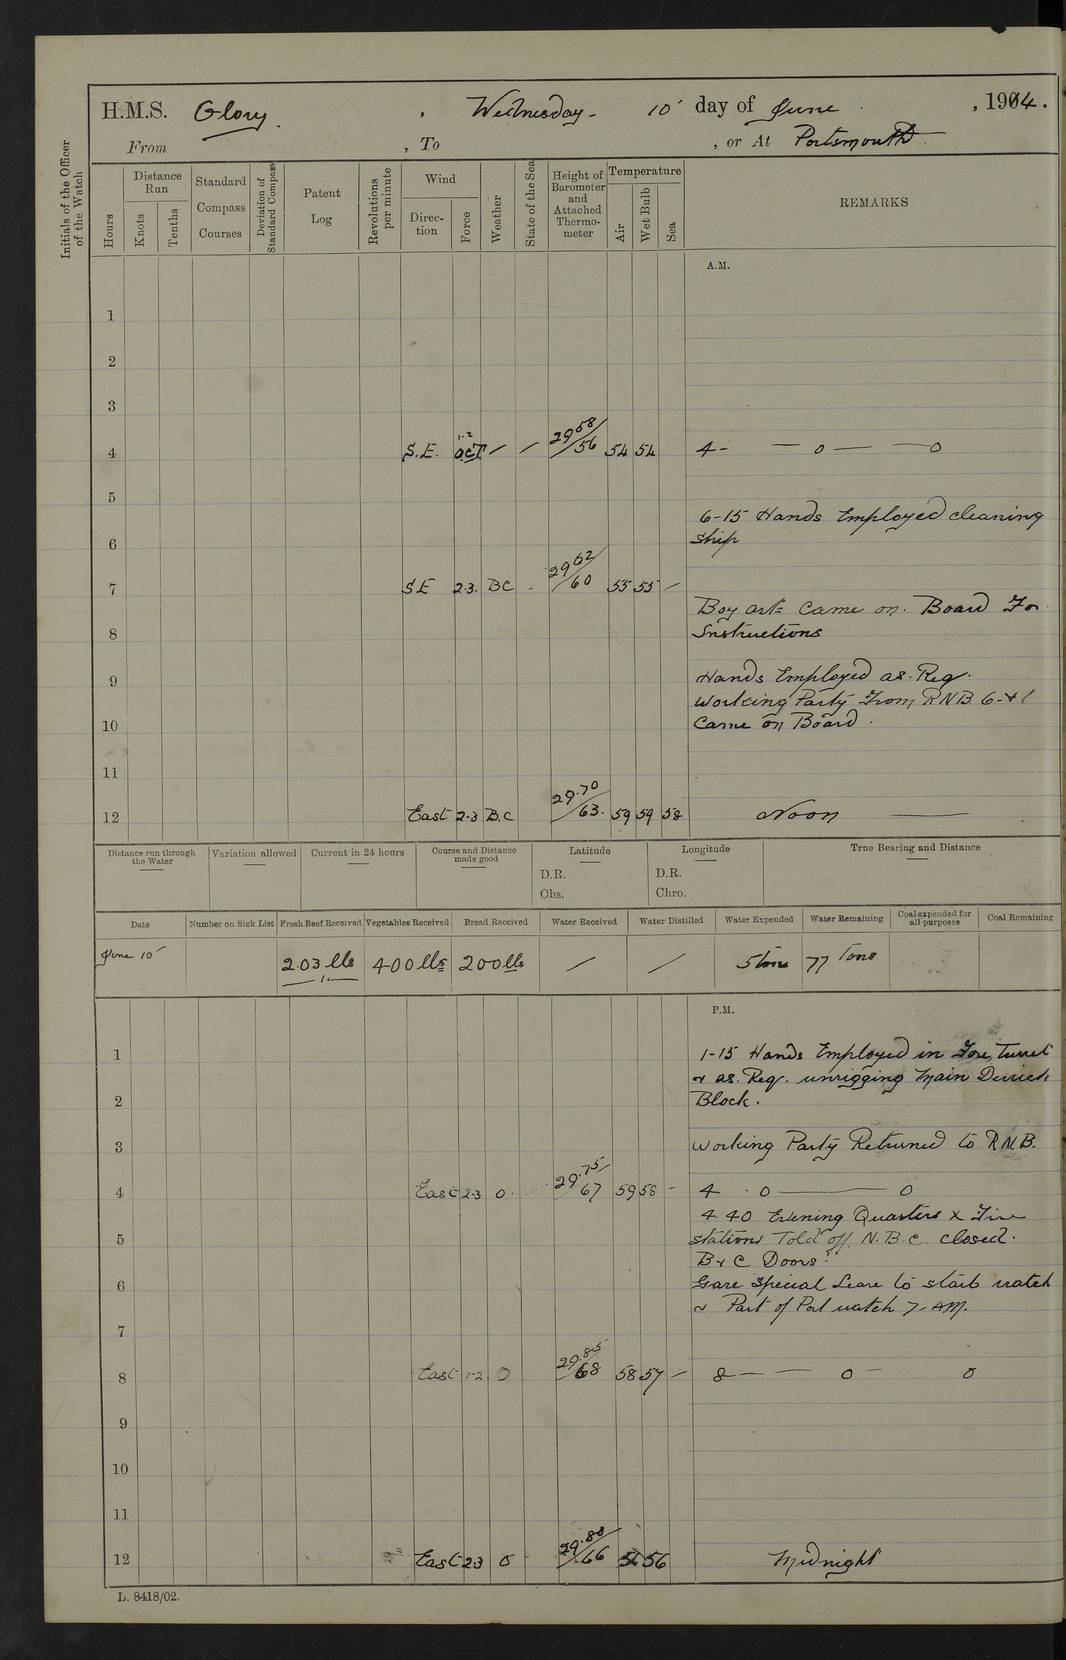 H.M.S. Glory, Wednesday 10 day of June, 1914.
From , To , or At Portsmouth
Initials of the Officer of the Watch
Hours
Distance Run
Knots
Tenths
Standard Compass Courses
Deviation of Standard Compass
Patent Log
Revolutions per minute
Wind
Direc-tion
Force
Weather
State of the Sea
Height of Barometer and Attached Thermo-meter
Temperature
Air
Wet Bulb
Sea
REMARKS
A.M.
1
2
3
4 S.E. 1-2 / / 29 58/56 54 54 4- — o — — o
5
6-15 Hands Employed cleaning
ship
6
7 SE 2.3. BC - 29 62/60 55 55 /
Boy art= Came on. Board For
Instructions
8
9 Hands Employed as. Req.
Working Party From RNB. 6-+1
Came on Board.
10
11
12 East 2-3 B.C 29.70/63. 59 59 58 Noon —
Distance run through the Water
Variation allowed
Current in 24 hours
Course and Distance made good
Latitude
D.R.
Obs.
Longitude
D.R.
Chro.
True Bearing and Distance
Date
Number on Sick List
Fresh Beef Received
Vegetables Received
Bread Received
Water Received
Water Distilled
Water Expended
Water Remaining
Coal expended for all purposes
Coal Remaining
June 10 203 lbs 400 lbs 200 lbs / / 5 tons 77 Tons
P.M.
1 1-15 Hands Employed in Fore Turret
& as. Req. unrigging Main Derrick
2 Block.
3 Working Party Returned to RNB.
4 East 2-3 O. 29.75/67 59 58 - 4 . o — o
4.40 Evening Quarters X Fire
5 stations Told off. N.B.C closed.
B & C Doors.
6 Gave Special Leave to starb watch
& Part of Port watch 7-AM.
7
8 East 1-2 O 29.85/68 58 57 / 8 — — o - o
9
10
11
12 East 2 3 O 29.88/66 56 56 Midnight
L. 8418/02.